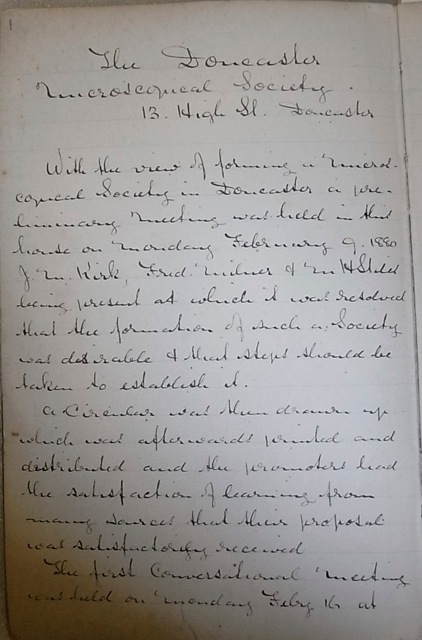 1
The Doncaster
Microscopical Society.
13. High St. Doncaster
With the view of forming a Micros-
copical Society in Doncaster a pre-
liminary Meeting was held in this
house on Monday February 9. 1880
J. M. Kirk, Fred Milner & M H Stiles
being present at which it was resolved
that the formation of such a Society
was desirable & that steps should be
taken to establish it.
A Circular was then drawn up
which was afterwards printed and
distributed and the promoters had
the satisfaction of learning from
many sources that their proposal
was satisfactorily received
The first Conversational Meeting
was held on Monday Feby 16 at